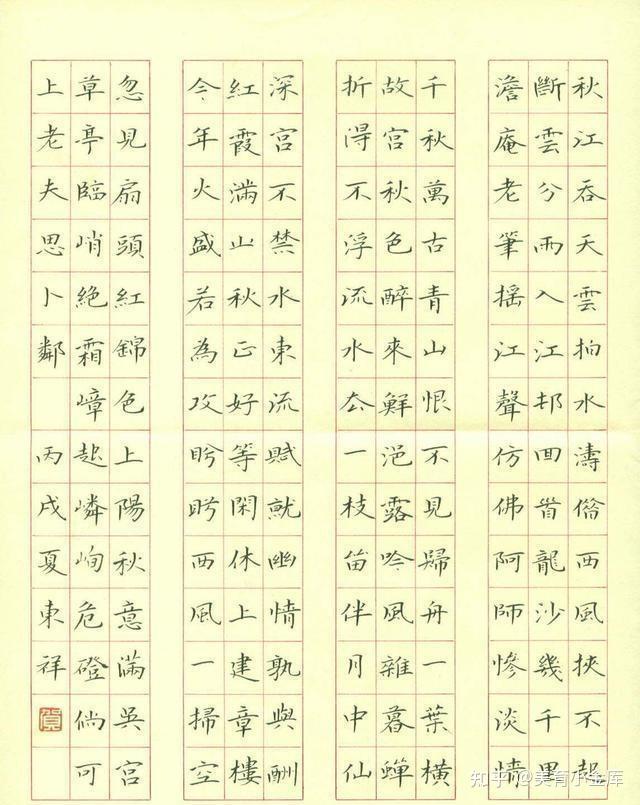 秋江吞天雲拍水濤借西風挾不起
斷雲分雨入江邨回首龍沙幾千里
澹庵老筆摇江聲仿佛阿師慘淡情
千秋萬古青山恨不見歸舟一葉橫
故宮秋色醉來鮮浥露吟風雜暮蟬
折得不浮流水去一枝笛伴月中仙
深宮不禁水東流賦就幽情孰與酬
紅霞滿山秋正好等閑休上建章樓
今年火盛若為攻盻盻西風一掃空
忽見扇頭紅錦色上陽秋意滿吳宮
草亭臨峭絕霜嶂起嶙峋危磴倘可
上老夫思卜鄰 丙戌夏東祥
賀
知乎 @美育小金库